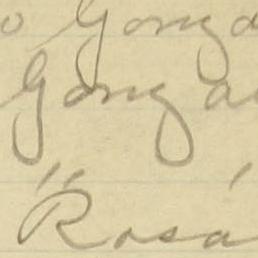 o Gonza
Gonzal
" '
Rosa